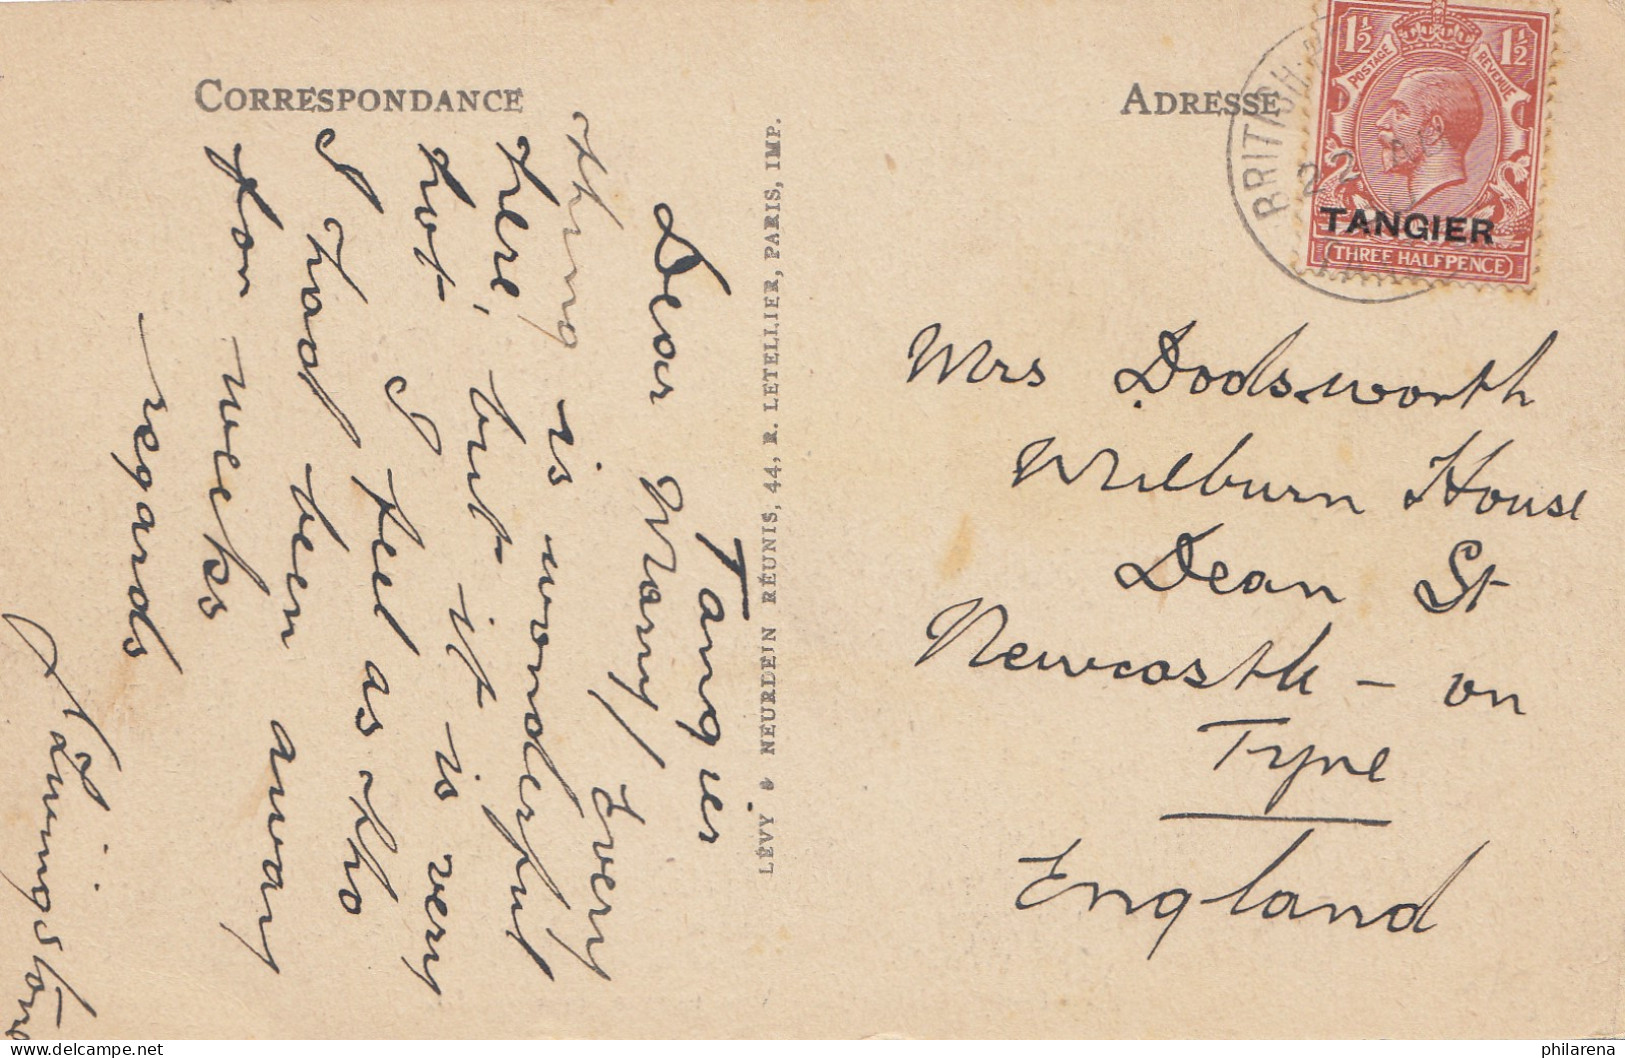 CORRESPONDANCE
Tangier
Dear Mary/ Every
thing is wonderful
here, but it is very
hot I feel as tho
I had been away
for weeks
regards
Livingstone
LÉVY & NEURDEIN RÉUNIS, 44, R. LETELLIER, PARIS, IMP.
ADRESSE
1½ 1½
POSTAGE REVENUE
TANGIER
THREE HALFPENCE
BRITISH
22 AP
Mrs Dodsworth
Milburn House
Dean St
Newcastle - on
Tyne
England
delcampe.net
philarena